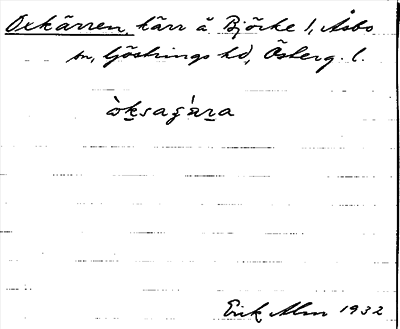 Oxkärren, kärr å Björke 1, Åsbo
sn, Göstrings hd, Österg. l.
òksaʒàra
Erik Alm 1932